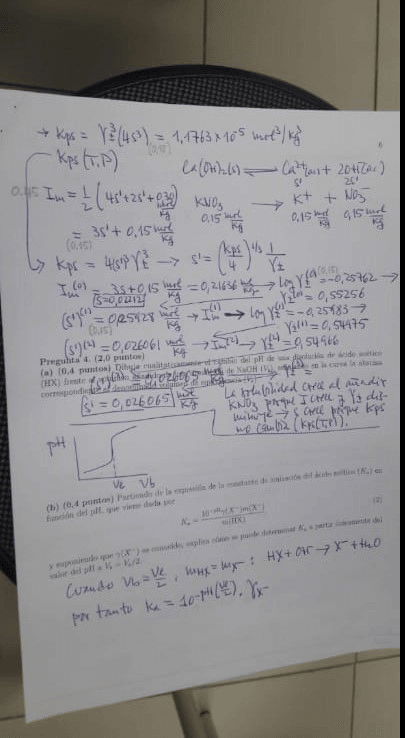 → Kps = γ±³(4s³) = 1,1763 × 10⁻⁵ mol³/kg³
(0,15)
6
Kps(T,P)
Ca(OH)₂(s) ⇌ Ca²⁺(ac) + 2OH⁻(ac)
s' 2s'
0,45 Im = 1/2 (4s' + 2s' + 0,30 mol/kg)
KNO₃ → K⁺ + NO₃⁻
0,15 mol/kg 0,15 mol/kg 0,15 mol/kg
= 3s' + 0,15 mol/kg
(0,15)
→ Kps = 4(s')³γ±³ → s' = (Kps/4)^1/3 1/γ±
Im⁽⁰⁾ = 3s + 0,15 mol/kg = 0,21636 mol/kg → log γ±⁽⁰⁾ = -0,25762 →
s = 0,02212
γ±⁽⁰⁾ = 0,55256
(s')⁽¹⁾ = 0,025928 mol/kg → Im⁽¹⁾ → log γ±⁽¹⁾ = -0,25983 →
(0,15)
γ±⁽¹⁾ = 0,54975
(s')⁽²⁾ = 0,026061 mol/kg → Im⁽²⁾ → γ±⁽²⁾ = 0,54966
Pregunta 4. (2,0 puntos)
(a) (0,4 puntos) Dibuje cualitativamente el cambio del pH de una disolución de ácido acético
(HX) frente al de NaOH (Vb), en la curve la abscisa
correspondiente al
0,026065 mol/kg
s' = 0,026065 mol/kg
La solubilidad crece al añadir
KNO₃ porque I crece y γ± dis-
minuye → s crece porque Kps
no cambia (Kps(T,P)).
pH
Ve Vb
(b) (0,4 puntos) Partiendo de la expresión de la constante de ionización del ácido acético (Ka) en
función del pH, que viene dada por
Ka = 10^-pH γ(X⁻)m(X⁻) / m(HX) (2)
y suponiendo que γ(X⁻) es conocido, explica cómo se puede determinar Ka a partir únicamente del
valor del pH a Vb = Ve/2.
Cuando Vb = Ve/2, mHX = mX⁻ : HX + OH⁻ → X⁻ + H₂O
por tanto Ka = 10^-pH(Ve/2) · γX⁻